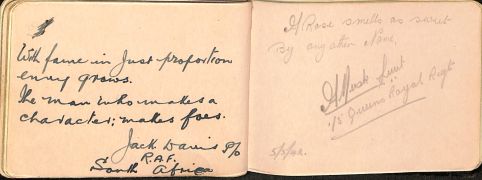 With fame in Just proportion
envy grows.
The man who makes a
character; makes foes.
Jack Davis P/O
R.A.F.
South Africa
A Rose smells as sweet
By any other Name,
A Musk
1/5 Queens Royal Regt
5/5/42.